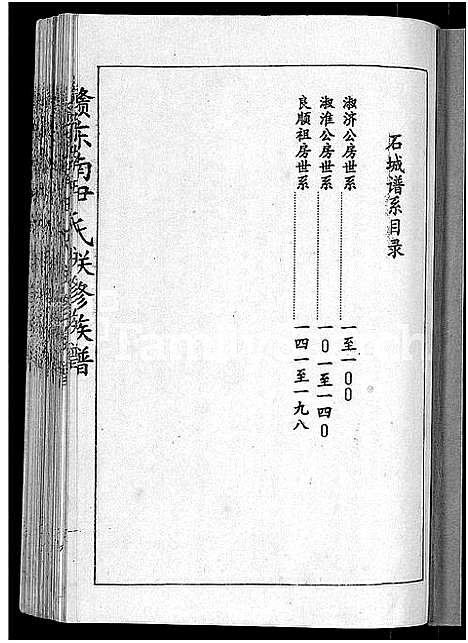 石城谱系目录
淑济公房世系……一至一00
淑淮公房世系……一0一至一四0
良顺祖房世系……一四一至一九八
赣东南尹氏联修族谱